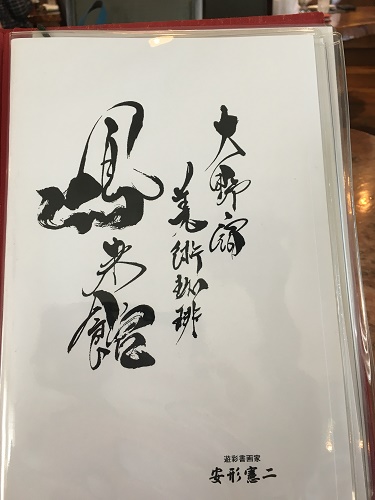 大野宿
美術珈琲
鳳来館
遊彩書画家
安形憲二